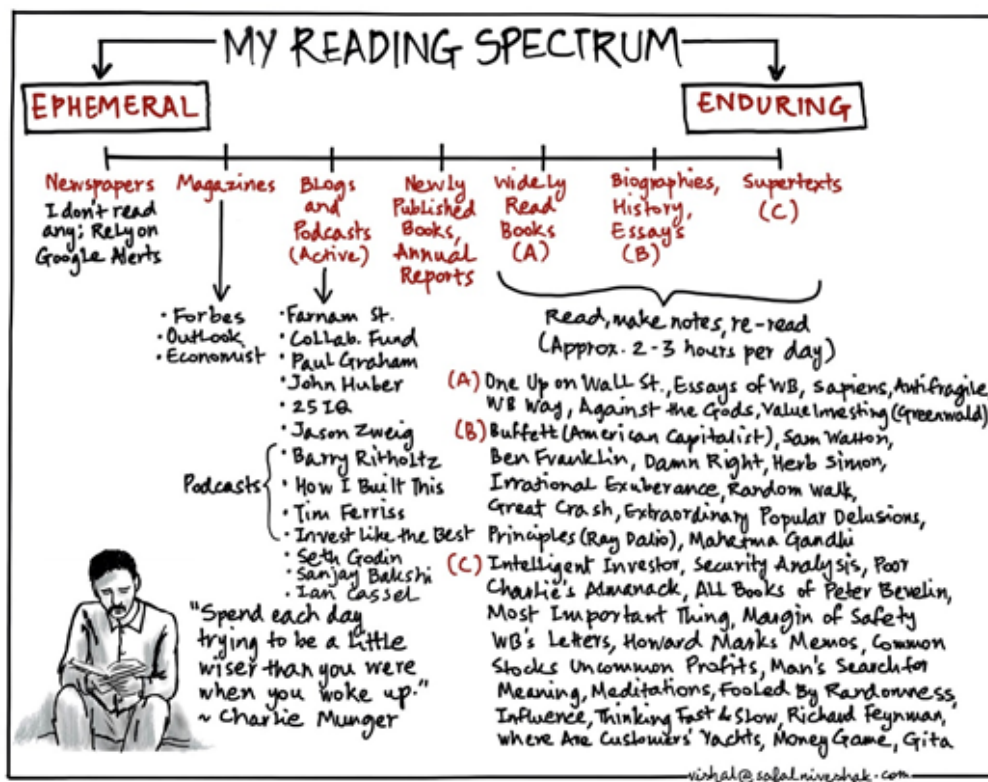 MY READING SPECTRUM
EPHEMERAL
ENDURING
Newspapers
I don't read
any; Rely on
Google Alerts
Magazines
• Forbes
• Outlook
• Economist
Blogs
and
Podcasts
(Active)
• Farnam St.
• Collab. Fund
• Paul Graham
• John Huber
• 25 IQ
• Jason Zweig
Podcasts
• Barry Ritholtz
• How I Built This
• Tim Ferriss
• Invest Like the Best
• Seth Godin
• Sanjay Bakshi
• Ian Cassel
Newly
Published
Books,
Annual
Reports
Widely
Read
Books
(A)
Biographies,
History,
Essays
(B)
Supertexts
(C)
Read, make notes, re-read
(Approx. 2-3 hours per day)
(A) One Up on Wall St., Essays of WB, Sapiens, Antifragile
WB Way, Against the Gods, Value Investing (Greenwald)
(B) Buffett (American Capitalist), Sam Walton,
Ben Franklin, Damn Right, Herb Simon,
Irrational Exuberance, Random Walk,
Great Crash, Extraordinary Popular Delusions,
Principles (Ray Dalio), Mahatma Gandhi
(C) Intelligent Investor, Security Analysis, Poor
Charlie's Almanack, All Books of Peter Bevelin,
Most Important Thing, Margin of Safety
WB's Letters, Howard Marks Memos, Common
Stocks Uncommon Profits, Man's Search for
Meaning, Meditations, Fooled By Randomness,
Influence, Thinking Fast & Slow, Richard Feynman,
Where Are Customers' Yachts, Money Game, Gita
"Spend each day
trying to be a little
wiser than you were
when you woke up."
~ Charlie Munger
vishal@safalniveshak.com